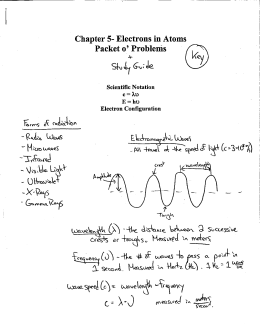 Chapter 5- Electrons in Atoms
Packet o' Problems
+
Study Guide
Key
Scientific Notation
c = λυ
E = hυ
Electron Configuration
Forms of radiation
- Radio Waves
- Microwaves
- Infrared
- Visible Light
- Ultraviolet
- X-Rays
- Gamma Rays
Electromagnetic Waves
- All travel at the speed of light
crest
wavelength
Amplitude
Trough
wavelength (λ) - the distance between 2 successive
crests or troughs. Measured in meters
Frequency (υ) - the # of waves to pass a point in
1 second. Measured in Hertz (Hz).
wave speed (c) = wavelength · frequency
c = λ·υ
measured in meters
second